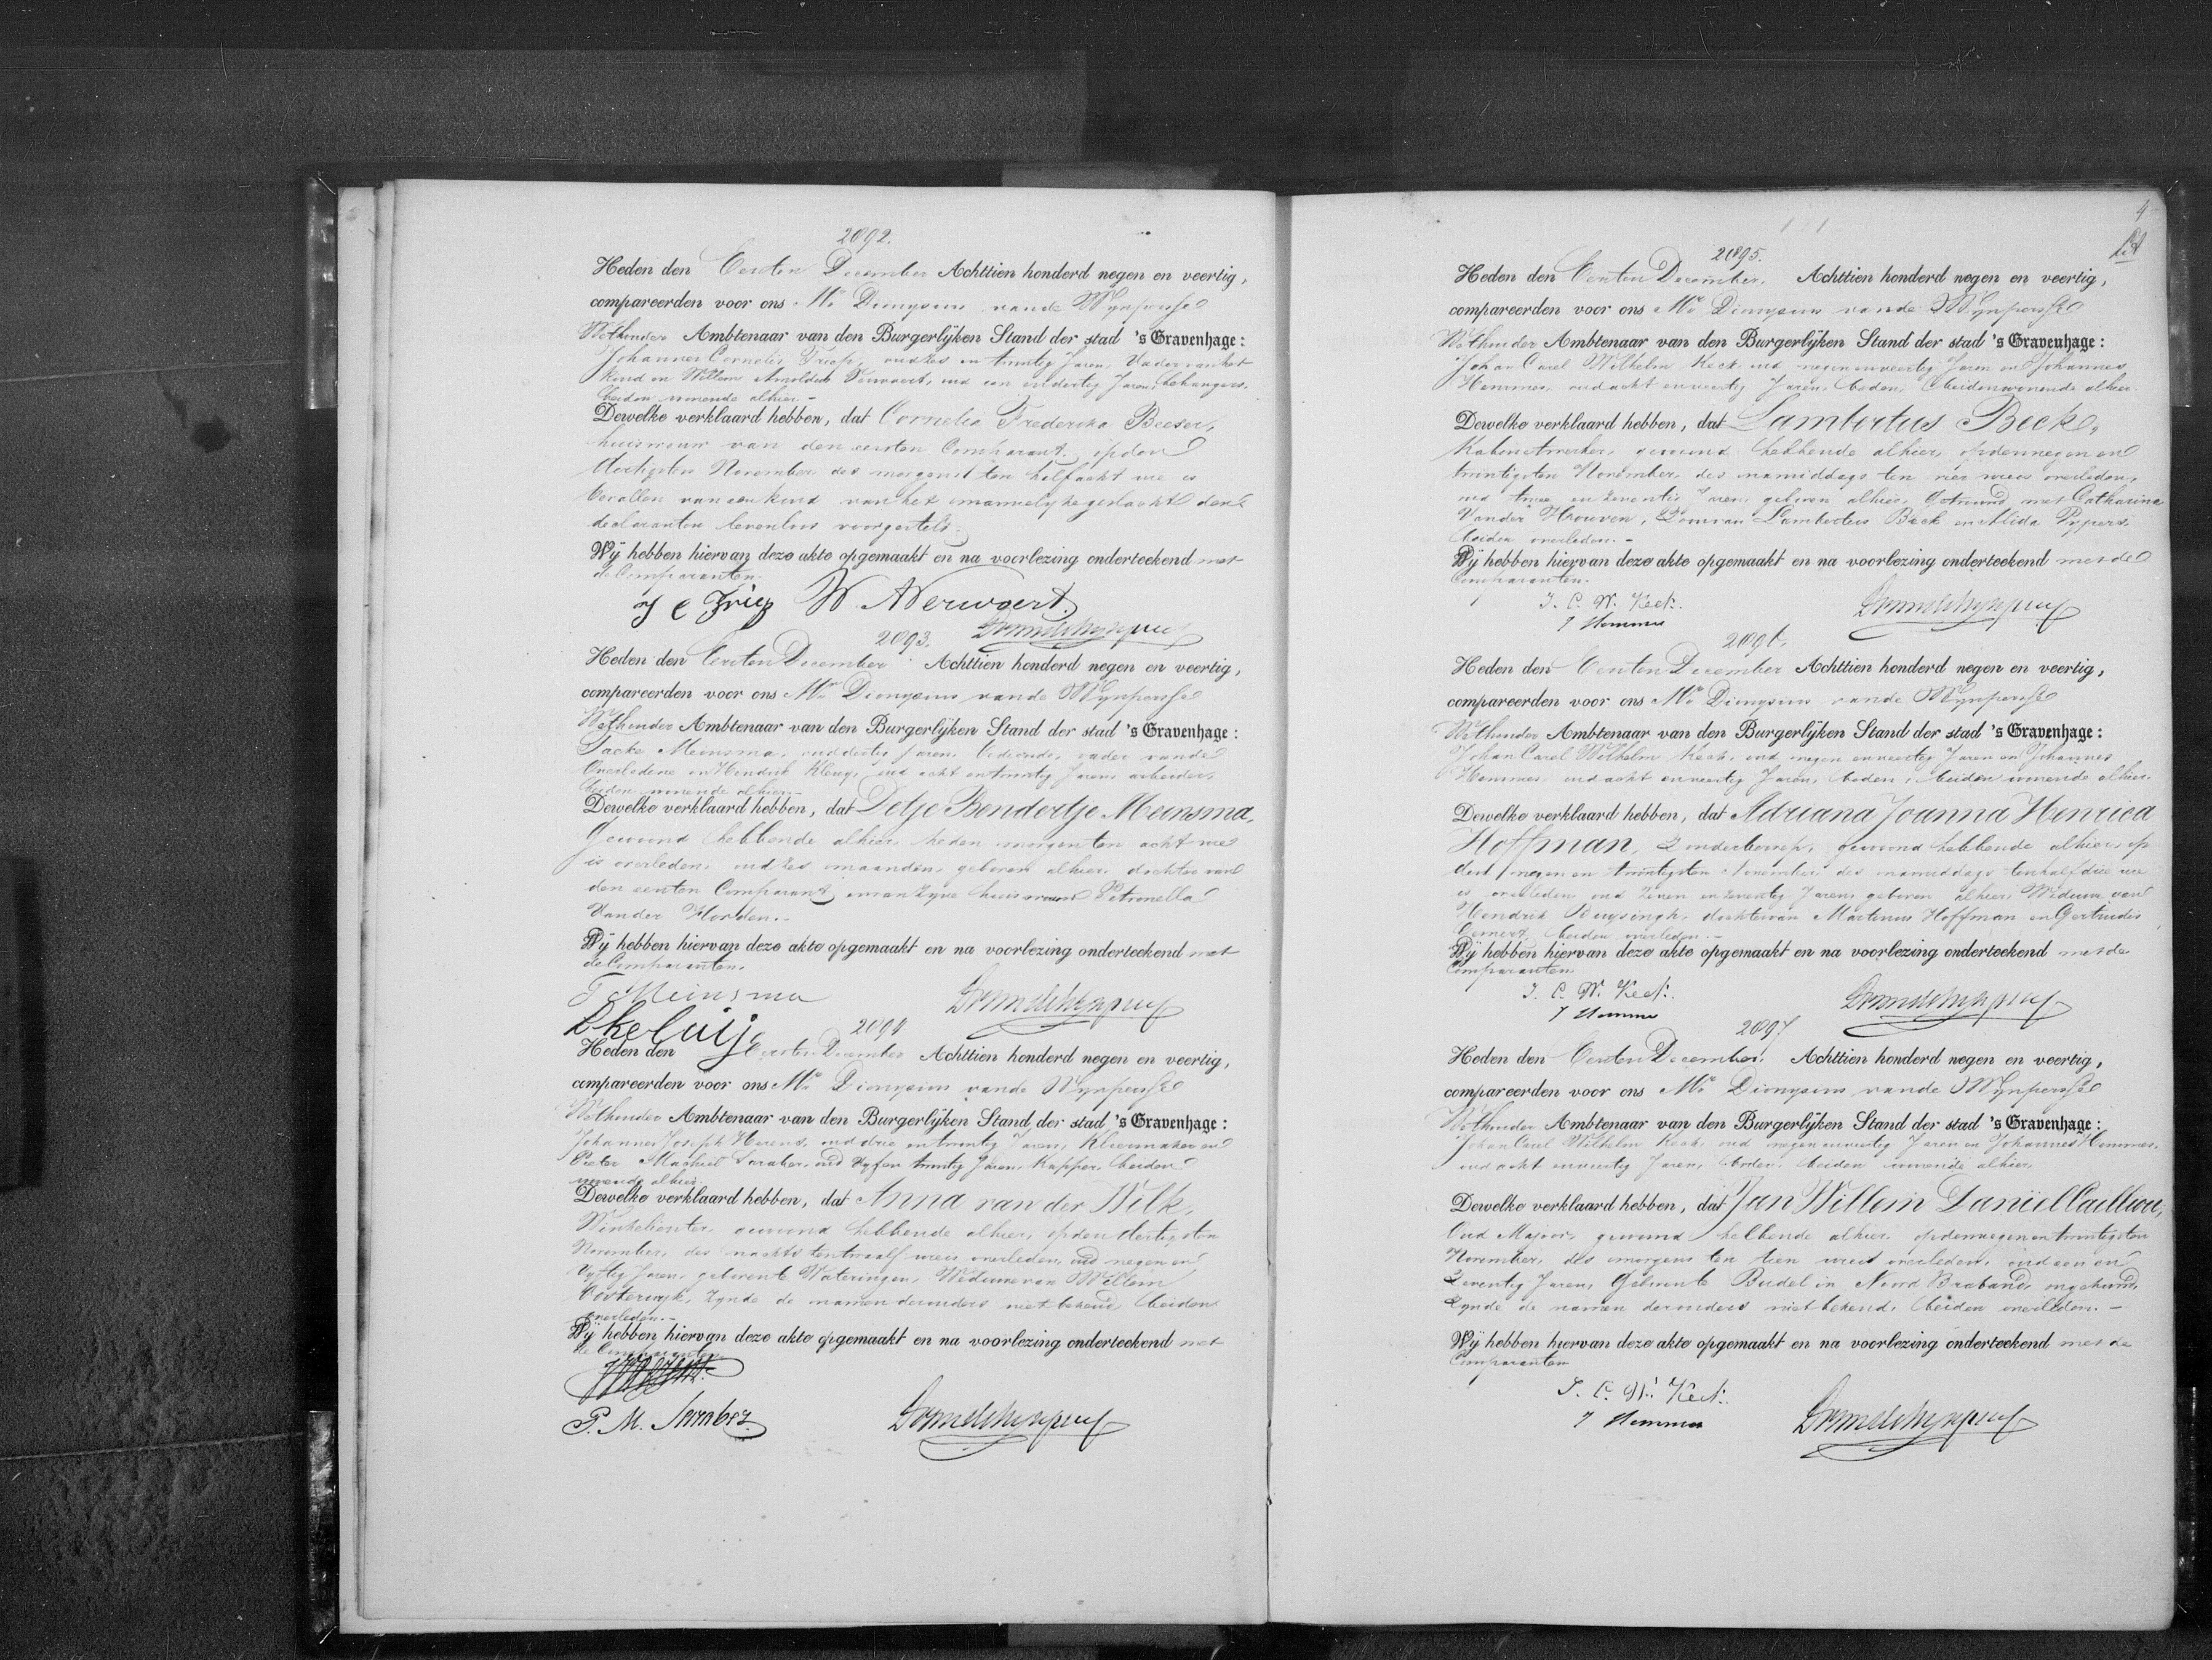 2092.
Heden den Eersten December Achttien honderd negen en veertig,
compareerden voor ons Mr. Dionysius van de Wynpersse
Wethouder Ambtenaar van den Burgerlijken Stand der stad 's Gravenhage:
Johannes Cornelis oud zes en twintig Jaren, Vader van het
kind en Willem oud een en dertig Jaren, behangers,
beiden wonende alhier.-
Dewelke verklaard hebben, dat Cornelia Frederika Beeser,
huisvrouw van den eersten Comparant, op den
dertigsten November des morgens ten half acht ure is
bevallen van een kind van het mannelyke geslacht den
declaranten levenloos voorgesteld.
Wij hebben hiervan deze akte opgemaakt en na voorlezing onderteekend met
de Comparanten.
2093.
Heden den Eersten December Achttien honderd negen en veertig,
compareerden voor ons Mr. Dionysius van de Wynpersse
Wethouder Ambtenaar van den Burgerlijken Stand der stad 's Gravenhage:
Meinsma, oud dertig Jaren, bediende, vader van de
Overledene en Hendrik oud acht en twintig Jaren, arbeider,
beiden wonende alhier.-
Dewelke verklaard hebben, dat Detje Bendertje Meinsma,
Gewoond hebbende alhier, heden morgen ten acht ure
is overleden, oud zes maanden, geboren alhier, dochter van
den eersten Comparant, en van zyne huisvrouw Petronella
Van der Horden.-
Wij hebben hiervan deze akte opgemaakt en na voorlezing onderteekend met
de Comparanten.
Meinsma
2094
Heden den Eersten December Achttien honderd negen en veertig,
compareerden voor ons Mr. Dionysius van de Wynpersse
Wethouder Ambtenaar van den Burgerlijken Stand der stad 's Gravenhage:
Johannes Joseph oud drie en twintig Jaren, Kleermaker en
Pieter oud vyf en twintig Jaren, Kapper, beiden
wonende alhier.
Dewelke verklaard hebben, dat Anna van der Wilk,
Winkelierster, gewoond hebbende alhier, op den dertigsten
November, des nachts ten twaalf ure is overleden, oud negen en
vyftig Jaren, geboren te Wateringen, Weduwe van Willem
Oosterwyk, zynde de namen der ouders niet bekend beiden
overleden.-
Wij hebben hiervan deze akte opgemaakt en na voorlezing onderteekend met
de Comparanten
P. M.
2095.
Heden den Eersten December. Achttien honderd negen en veertig,
compareerden voor ons Mr. Dionysius van de Wynpersse
Wethouder Ambtenaar van den Burgerlijken Stand der stad 's Gravenhage:
Johan Carel Wilhelm Keck, oud negen en veertig Jaren en Johannes
Hemmes, oud acht en veertig Jaren, boden, beiden wonende alhier.
Dewelke verklaard hebben, dat Lambertus Beck,
Kabinetwerker, gewoond hebbende alhier, op den negen en
twintigsten November, des namiddags ten vier ure is overleden,
oud twee en zeventig Jaren, geboren alhier, Getrouwd met Catharina
Van der Hoeven, Zoon van Lambertus Beck en Alida Pypers
beiden overleden.-
Wij hebben hiervan deze akte opgemaakt en na voorlezing onderteekend met de
Comparanten.
J. C. W. Keck.
2096.
Heden den Eersten December Achttien honderd negen en veertig,
compareerden voor ons Mr. Dionysius van de Wynpersse
Wethouder Ambtenaar van den Burgerlijken Stand der stad 's Gravenhage:
Johan Carel Wilhelm Keck, oud negen en veertig Jaren en Johannes
Hemmes, oud acht en veertig Jaren, boden, beiden wonende alhier.
Dewelke verklaard hebben, dat Adriana Joanna Henrica
Hoffman, Zonder beroep, gewoond hebbende alhier, op
den negen en twintigsten November des namiddags ten half drie ure
is overleden, oud zeven en zeventig Jaren, geboren alhier, Weduwe van
Hendrik Buysingh, dochter van Martinus Hoffman en Gertrudis
beiden overleden.-
Wij hebben hiervan deze akte opgemaakt en na voorlezing onderteekend met de
Comparanten
J. C. W. Keck.
2097
Heden den Eersten December. Achttien honderd negen en veertig,
compareerden voor ons Mr. Dionysius van de Wynpersse
Wethouder Ambtenaar van den Burgerlijken Stand der stad 's Gravenhage:
Johan Carel Wilhelm Keck, oud negen en veertig Jaren en Johannes Hemmes,
oud acht en veertig Jaren, boden, beiden wonende alhier,
Dewelke verklaard hebben, dat Jan Willem Daniel Cailliau,
Oud Majoor, gewoond hebbende alhier, op den negen en twintigsten
November, des morgens ten tien ure is overleden, oud een en
zeventig Jaren, Geboren te Budel in Noord Braband, ongehuwd,
Zynde de namen der ouders niet bekend, beiden overleden.-
Wij hebben hiervan deze akte opgemaakt en na voorlezing onderteekend met de
Comparanten
J. C. W. Keck.